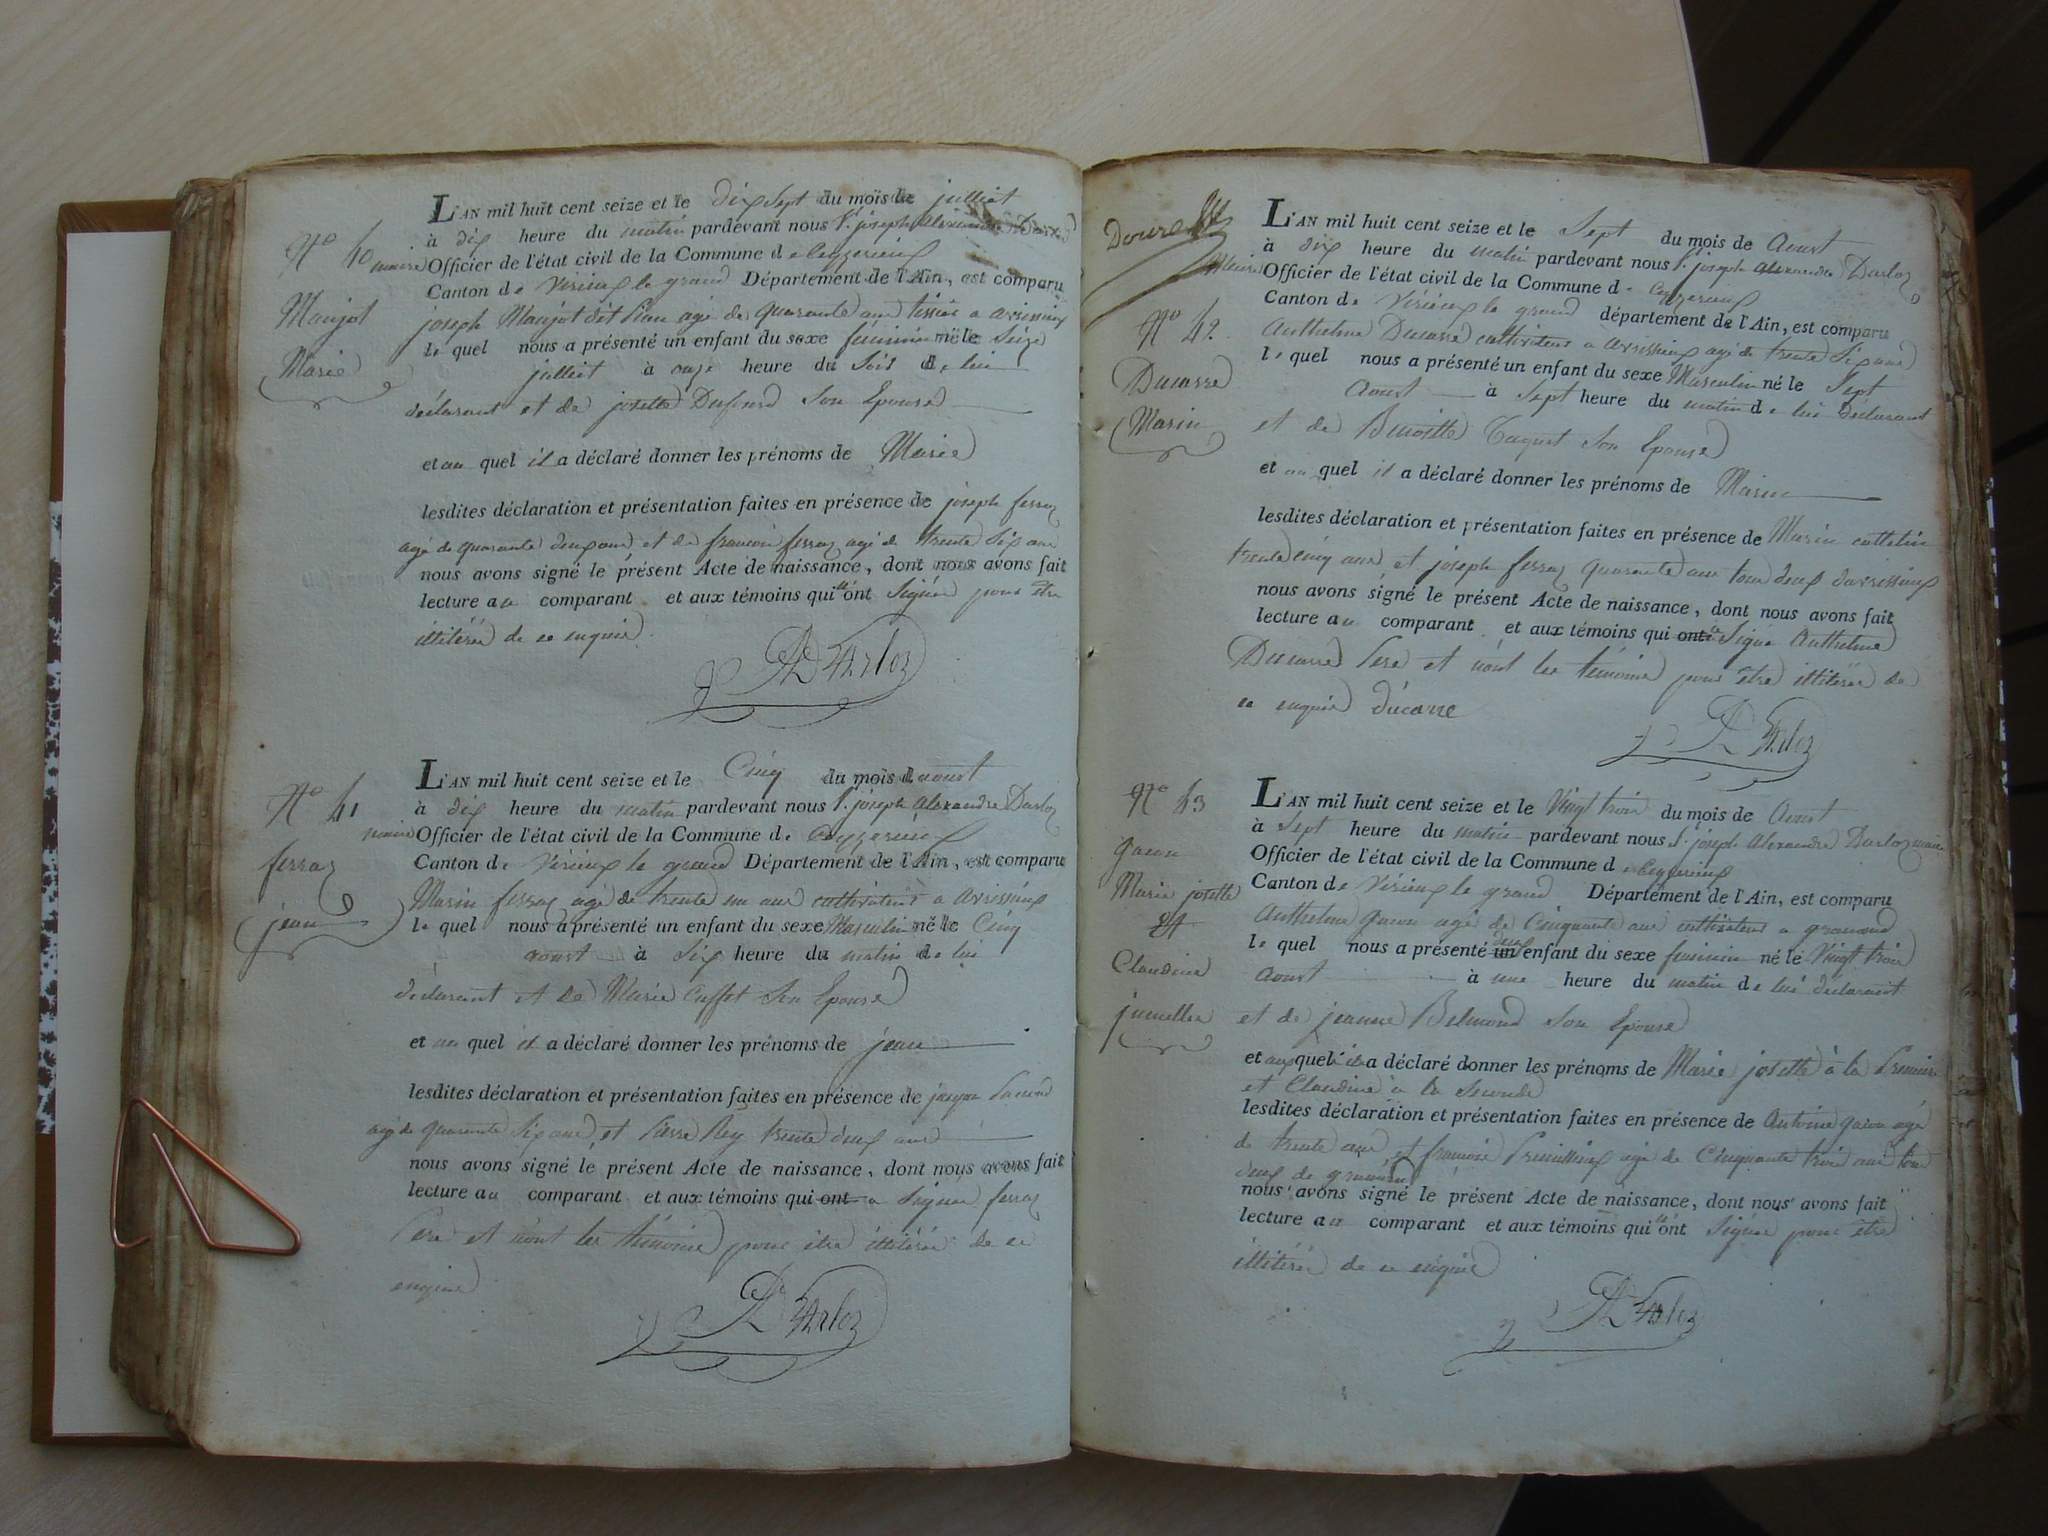 N° 40
Marjot
Marie
L'AN mil huit cent seize et le dix sept du mois de juilliet
à dix heure du matin pardevant nous P. joseph Alexandre Darloz
maire Officier de l'état civil de la Commune de Ceyzerieux
Canton de Virieux le grand Département de l'Ain, est comparu
joseph Marjot dit agé de quarante ans tissier a avrissieux
le quel nous a présenté un enfant du sexe féminin né le Seize
juilliet à onze heure du Soir de lui
déclarant et de josette Son Epouse
et au quel il a déclaré donner les prénoms de Marie
lesdites déclaration et présentation faites en présence de joseph ferraz
agé de quarante deux ans et de francois ferraz agé de trente Six ans
nous avons signé le présent Acte de naissance, dont nous avons fait
lecture au comparant et aux témoins qui n'ont Signés pour être
illitérés de ce enquis
DArloz
N° 41
ferraz
jean
L'AN mil huit cent seize et le Cinq du mois d aoust
à dix heure du matin pardevant nous P. joseph Alexandre Darloz
maire Officier de l'état civil de la Commune de Ceyzerieux
Canton de Virieux le grand Département de l'Ain, est comparu
Marin ferraz agé de trente un ans cultivateur a avrissieux
le quel nous a présenté un enfant du sexe Masculin né le Cinq
aoust à Six heure du matin de lui
déclarant et de Marie Cusset Son Epouse
et au quel il a déclaré donner les prénoms de jean
lesdites déclaration et présentation faites en présence de
agé de quarante Six ans, et Pierre Rey trente deux ans
nous avons signé le présent Acte de naissance, dont nous avons fait
lecture au comparant et aux témoins qui ont a Signer ferraz
Pere et n'ont les témoins pour être illitérés de ce
enquis
DArloz
Maire
N° 42
Ducarre
Marin
L'AN mil huit cent seize et le Sept du mois de Aoust
à dix heure du matin pardevant nous P. joseph Alexandre Darloz
Officier de l'état civil de la Commune de Ceyzerieux
Canton de Virieux le grand département de l'Ain, est comparu
Anthelme Ducarre cultivateur a Avrissieux agé de trente Six ans
le quel nous a présenté un enfant du sexe Masculin né le Sept
Aoust à Sept heure du matin de lui Déclarant
et de Benoitte Taquet Son Epouse
et au quel il a déclaré donner les prénoms de Marin
lesdites déclaration et présentation faites en présence de Marin cattelin
trente cinq ans et joseph ferraz quarante ans tous deux davrissieux
nous avons signé le présent Acte de naissance, dont nous avons fait
lecture au comparant et aux témoins qui ont a Signé Anthelme
Ducarre Pere et n'ont les témoins pour être illitérés de
ce enquis ducarre
DArloz
N° 43
gacon
Marie josette
et
Claudine
jumelles
L'AN mil huit cent seize et le Vingt trois du mois de Aoust
à Sept heure du matin pardevant nous P. joseph Alexandre Darloz maire
Officier de l'état civil de la Commune de Ceyzerieux
Canton de Virieux le grand Département de l'Ain, est comparu
Anthelme gacon agé de Cinquante ans cultivateur a
le quel nous a présenté un deux enfant du sexe feminin né le Vingt trois
Aoust à une heure du matin de lui déclarant
et de jeanne Belmond Son Epouse
et aux quel il a déclaré donner les prénoms de Marie josette à la Premiere
et Claudine a la Seconde
lesdites déclaration et présentation faites en présence de Antoine gacon agé
de trente ans et francois agé de Cinquante trois ans tous
deux de
nous avons signé le présent Acte de naissance, dont nous avons fait
lecture au comparant et aux témoins qui n'ont Signés pour être
illitérés de ce enquis
DArloz